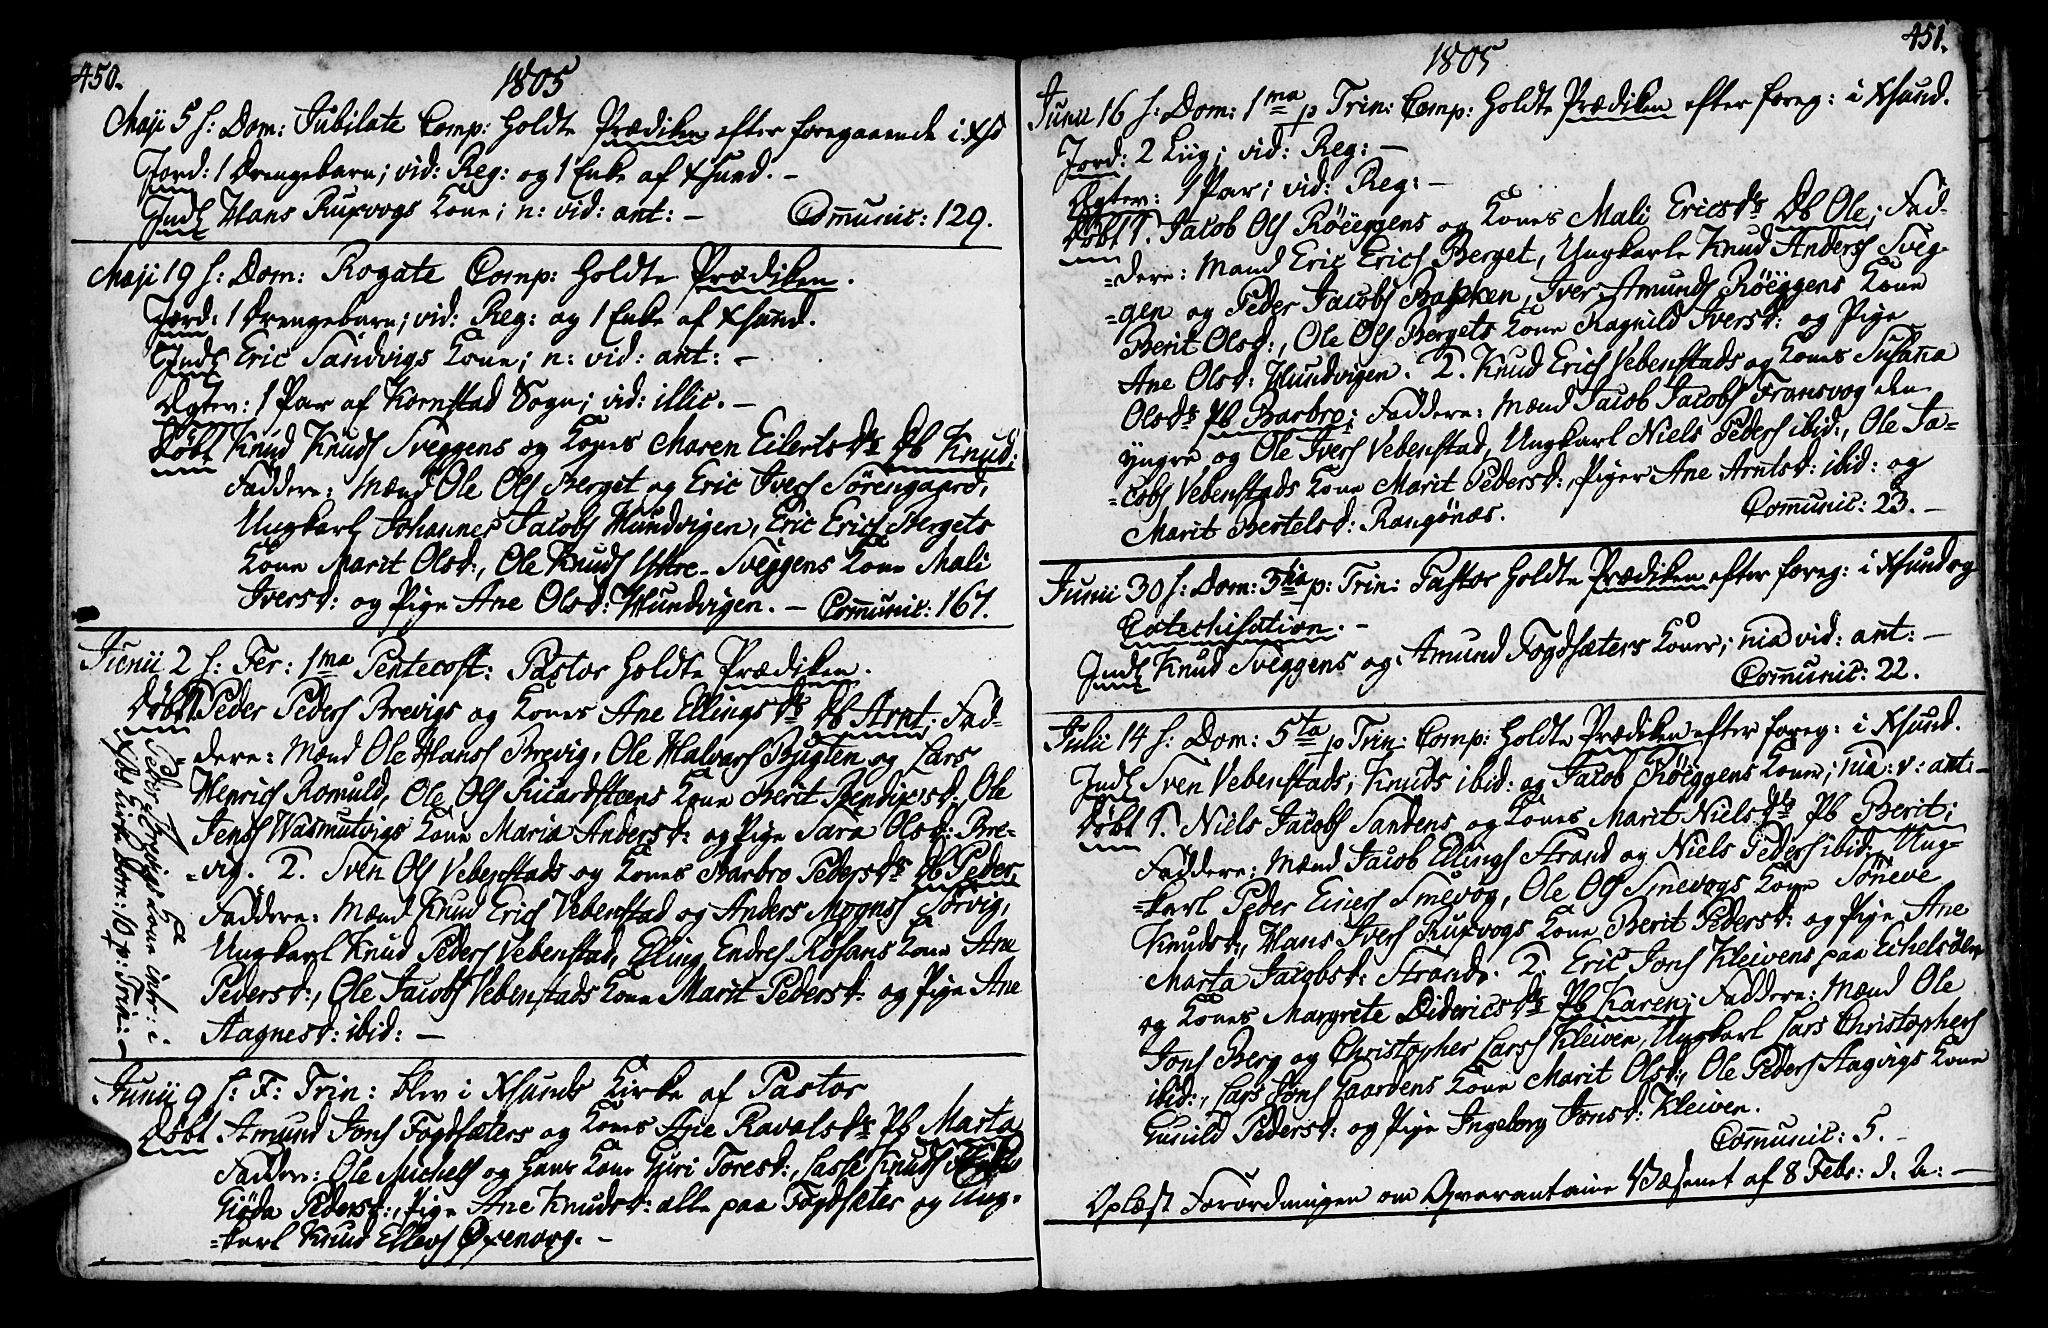 450.
1805
Maji 5 h: Dom: Jubilate Comp: holdte Prædiken efter foregaaende i XS
Jord: 1 Drengebarn; vid: Reg: og 1 Enke af Xsund. -
Indl Hans Ruxvogs Kone; n: vid: ant: - Communic: 129.
Maji 19 h: Dom: Rogate Comp: holdte Prædiken.
Jord: 1 Drengebarn; vid: Reg: og 1 Enke af Xsund.
Indl Eric Sandvigs Kone; n: vid: ant: -
Ægtev: 1 Par af Kornstad Sogn; vid: illic. -
Døbt Knud Knuds Sveggens og Kones Maren Eilertsdr Db Knud;
Faddere: Mænd Ole Ols Berget og Eric Ivers Sørengaard,
Ungkarl Johannes Jacobs Hundvigen, Eric Erics Bergets
Kone Marit Olsd:, Ole Knuds Ytre-Sveggens Kone Mali
Iversd: og Pige Ane Olsd: Hundvigen. - Communic: 167.
Junii 2 h: Fer: 1ma Pentecost: Pastor holdte Prædiken.
Døbt 1. Peder Peders Brevigs og Kones Ane Ellingsdr Db Arnt; Fad=
=dere: Mænd Ole Hanss Brevig, Ole Halvors Bugten og Lars
Henrics Romuld, Ole Ols Ricardstens Kone Berit Bendixsd:, Ole
Jenss Wasmutvigs Kone Maria Andersd: og Pige Sara Olsd: Bre=
=vig. 2. Sven Ols Vebenstads og Kones Barbro Pedersdr Db Peder;
Faddere: Mænd Knud Erics Vebenstad og Anders Mogns Sørvig,
Ungkarl Knud Peders Vebenstad, Elling Endres Røsans Kone Ane
Pedersd:, Ole Jacobs Vebenstads Kone Marit Pedersd: og Pige Ane
Aagnesd: ibid: -
Peder Brevigs Kone intr: i
XSs Kirke Dom: 10 p: Trin: -
Junii 9 h: F: Trin: blev i Xsunds Kirke af Pastor
Døbt Amund Jons Fogdsæters og Kones Ane Ravalsdr Pb Marta
Faddere: Ole Michels og hans Kone Guri Toresd:, Lasse Knuds
Giøda Pedersd:, Pige Ane Knudsd: alle paa Fogdsæter og Ung=
=karl Knud Ellevs Øxenvog. -
451.
1805
Junii 16 h: Dom: 1ma p Trin: Comp: holdte Prædiken efter foreg: i Xsund.
Jord: 2 Liig; vid: Reg: -
Ægtev: 1 Par; vid: Reg: -
Døbt 1. Jacob Ols Røeggens og Kones Mali Ericsdr Db Ole; Fad=
=dere: Mand Eric Erics Berget, Ungkarle Knud Anders Sveg=
=gen og Peder Jacobs Bakken, Iver Amunds Røeggens Kone
Berit Olsd:, Ole Ols Bergets Kone Ragnild Iversd: og Pige
Ane Olsd: Hundvigen. 2. Knud Erics Vebenstads og Kones Susana
Olsdr Pb Barbro; Faddere: Mænd Jacob Jacobs Fransvog den
yngre og Ole Ivers Vebenstad, Ungkarl Niels Peders ibid:, Ole Ja=
=cobs Vebenstads Kone Marit Pedersd:, Piger Ane Arntsd: ibid: og
Marit Bertelsd: Rangønæs. Communic: 23. -
Junii 30 h: Dom: 3tia p: Trin: Pastor holdte Prædiken efter foreg: i Xsund og
Catechisation. -
Indl Knud Sveggens og Amund Fogdsæters Koner; nia vid: ant: -
Communic: 22.
Julii 14 h: Dom: 5ta p Trin: Comp: holdte Prædiken efter foreg: i Xsund.
Indl Sven Vebenstads, Knuds ibid: og Jacob Røeggens Koner; nia: v: ant: -
Døbt 1. Niels Jacobs Sandens og Kones Marit Nielsdr Pb Berit;
Faddere: Mænd Jacob Ellings Strand og Niels Peders ibid:, Ung=
=karl Peder Einers Smevog, Ole Ols Smevogs Kone Søneve
Knudsd:, Hans Ivers Ruxvogs Kone Berit Pedersd: og Pige Ane
Marta Jacobsd: Strand. 2. Eric Jons Kleivens paa Echelsøen
og Kones Margrete Didericsdr Pb Karen; Faddere: Mænd Ole
Jons Berg og Christopher Larss Kleiven, Ungkarl Lars Christophers
ibid:, Lars Jons Gaardens Kone Marit Olsd:, Ole Peders Aagvigs Kone
Gunild Pedersd: og Pige Ingeborg Jonsd: Kleiven.
Communic: 5. -
Oplæst Forordningen om Qvarantaine Væsenet af 8 Febr: d. A: -